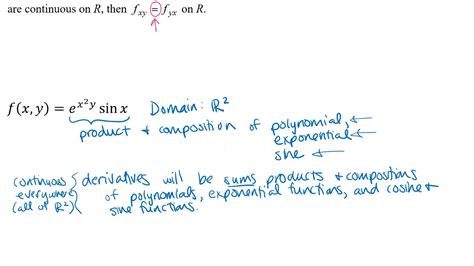 are continuous on R, then f_xy = f_yx on R.
f(x, y) = e^{x^2 y} sin x Domain: ℝ²
product & composition of polynomial,
exponential
sine
continuous everywhere (all of ℝ²) { derivatives will be sums products & compositions
of polynomials, exponential functions, and cosine &
sine functions.